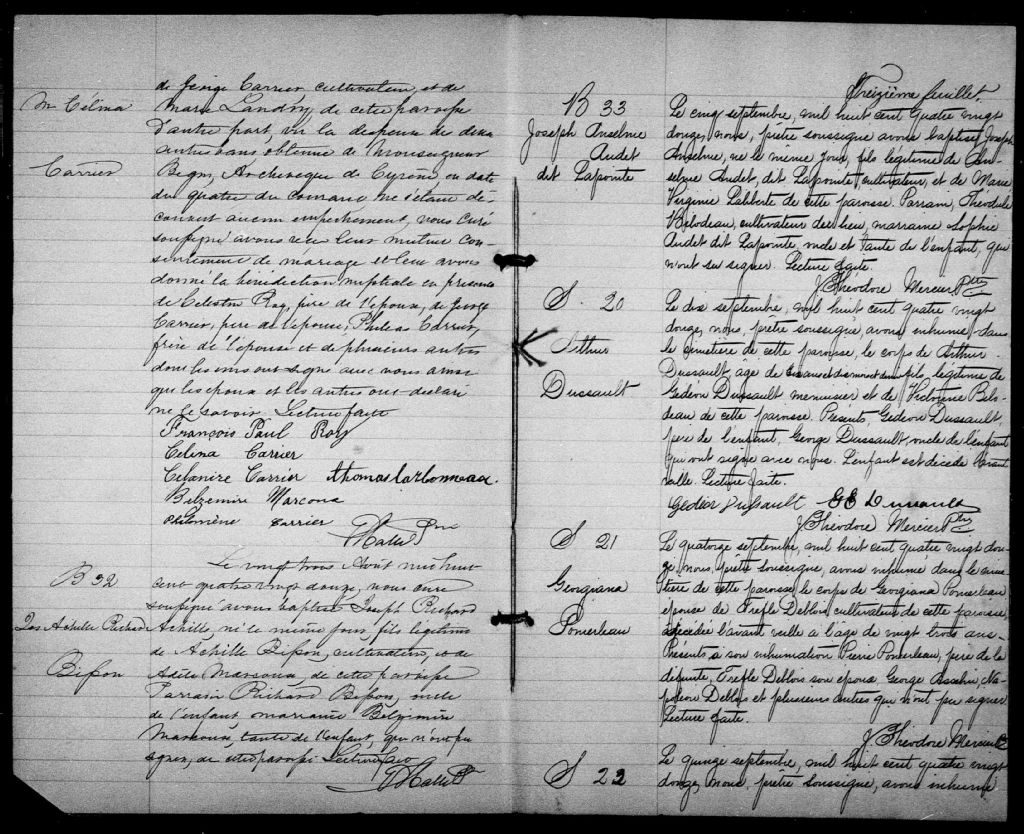 M Célina
Carrier
de George Carrier cultivateur, et de
Marie Landry de cette paroisse
d'autre part, vu la dispense de deux
autres bans obtenue de Monseigneur
Begin, Archevêque de Cyrène, en date
du quatre du courant ne s'étant dé-
couvert aucun empêchement, nous curé
soussigné avons reçu leur mutuel con-
sentement de mariage et leur avons
donné la bénédiction nuptiale en présence
de Célestin Roy, père de l'époux, de George
Carrier, père de l'épouse, Philéas Carrier,
frère de l'épouse et de plusieurs autres
dont les uns ont signé avec nous ainsi
que les époux et les autres ont déclaré
ne le savoir. Lecture faite
François Paul Roy
Celina Carrier
Celanire Carrier thomas carbonneau
Belzemire Marcoux
philomène carrier
B 32
Jos Achille Richard
Bisson
Le vingt trois Août mil huit
cent quatre vingt douze, nous curé
soussigné avons baptisé Joseph Richard
Achille, né le même jour, fils légitime
de Achille Bisson, cultivateur, et de
Adèle Marcoux, de cette paroisse
Parrain Richard Bisson, oncle
de l'enfant, marraine Belzémire
Marcoux, tante de l'enfant, qui n'ont pu
signer, de cette paroisse Lecture faite
Treizième feuillet.
B 33
Joseph Anselme
Audet
dit Lapointe
Le cinq septembre, mil huit cent quatre vingt
douze, nous, prêtre soussigné avons baptisé Joseph
Anselme, né le même jour, fils légitime de An-
selme Audet, dit Lapointe cultivateur, et de Marie
Virginie Laliberté de cette paroisse. Parrain, Théodule
Bilodeau, cultivateur de ce lieu, marraine Sophie
Audet dit Lapointe, oncle et tante de l'enfant, qui
n'ont su signer. Lecture faite.
J Théodore Mercier Ptre
S. 20
Arthur
Dussault
Le dix septembre, mil huit cent quatre vingt
douze, nous, prêtre soussigné, avons inhumé dans
le cimetière de cette paroisse, le corps de Arthur
Dussault, âgé de fils légitime de
Gédéon Dussault menuisier et de Victorine Bilo-
deau de cette paroisse. Présents, Gédéon Dussault,
père de l'enfant, George Dussault, oncle de l'enfant
qui ont signé avec nous. L'enfant est décédé l'avant
veille. Lecture faite.
Gedéon Dussault GE Dussault
J Théodore Mercier Ptre
S 21
Georgiana
Pomerleau
Le quatorze septembre, mil huit cent quatre vingt dou-
ze, nous, prêtre soussigné, avons inhumé dans le cime
tière de cette paroisse le corps de Georgiana Pomerleau
épouse de Trefflé Deblois cultivateur de cette paroisse,
décédée l'avant veille à l'âge de vingt trois ans.
Présents à son inhumation Pierre Pomerleau, père de la
défunte, Trefflé Deblois son époux, George Asselin, Na-
poléon Deblois et plusieurs autres qui n'ont pu signer
Lecture faite.
J Théodore Mercier
S 22
Le quinze septembre, mil huit cent quatre vingt
douze, Nous, prêtre soussigné, avons inhumé